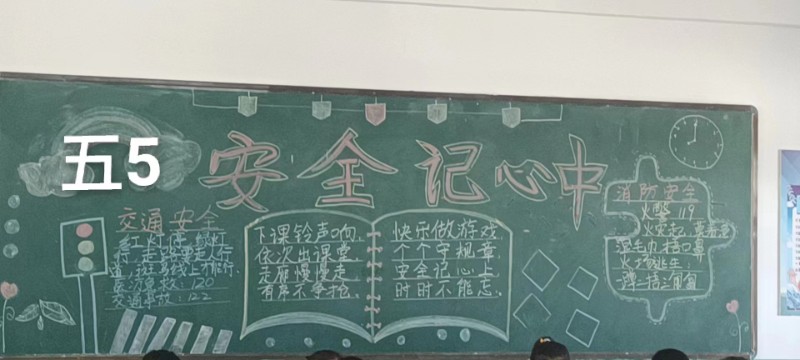 五5
安全记心中
交通安全
红灯停,绿灯
行,走路要走人行
道,斑马线上才能行.
医疗急救:120
交通事故:122
下课铃声响,
依次出课堂.
走廊慢慢走,
有序不争抢.
快乐做游戏,
个个守规章.
安全记心上,
时时不能忘.
消防安全
火警119
火灾起,
湿毛巾捂口鼻
火场逃生